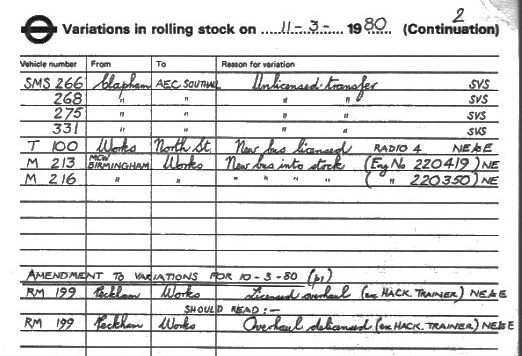 2
Variations in rolling stock on 11-3- 1980 (Continuation)
Vehicle number From To Reason for variation
SMS 266 Clapham AEC SOUTHALL Unlicensed transfer SVS
268 " " " " SVS
275 " " " " SVS
331 " " " " SVS
T 100 Works North St. New bus licensed RADIO 4 NE&E
M 213 MCW BIRMINGHAM Works New bus into stock (Eng No 220419) NE
M 216 " " " " " " ( " 220350) NE
AMENDMENT TO VARIATIONS FOR 10-3-80 (p1)
RM 199 Peckham Works Licensed overhaul (ex HACK. TRAINER) NE&E
SHOULD READ :-
RM 199 Peckham Works Overhaul delicensed (ex HACK. TRAINER) NE&E